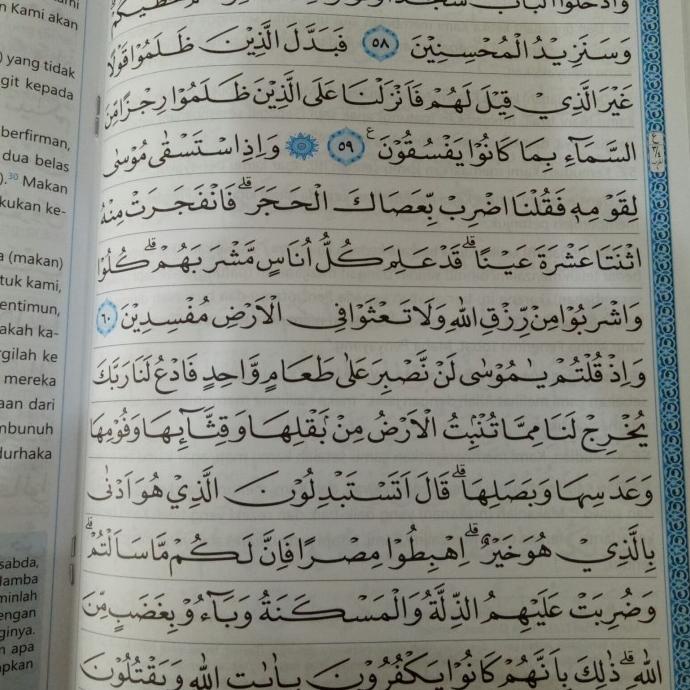 وَسَنَزِيْدُ الْمُحْسِنِيْنَ ٥٨ فَبَدَّلَ الَّذِيْنَ ظَلَمُوْا قَوْلًا
غَيْرَ الَّذِيْ قِيْلَ لَهُمْ فَاَنْزَلْنَا عَلَى الَّذِيْنَ ظَلَمُوْا رِجْزًا مِّنَ
السَّمَاۤءِ بِمَا كَانُوْا يَفْسُقُوْنَ ࣖ ٥٩ ۞ وَاِذِ اسْتَسْقٰى مُوْسٰى
لِقَوْمِهٖ فَقُلْنَا اضْرِبْ بِّعَصَاكَ الْحَجَرَۗ فَانْفَجَرَتْ مِنْهُ
اثْنَتَا عَشْرَةَ عَيْنًاۗ قَدْ عَلِمَ كُلُّ اُنَاسٍ مَّشْرَبَهُمْۗ كُلُوْا
وَاشْرَبُوْا مِنْ رِّزْقِ اللّٰهِ وَلَا تَعْثَوْا فِى الْاَرْضِ مُفْسِدِيْنَ ٦٠
وَاِذْ قُلْتُمْ يٰمُوْسٰى لَنْ نَّصْبِرَ عَلٰى طَعَامٍ وَّاحِدٍ فَادْعُ لَنَا رَبَّكَ
يُخْرِجْ لَنَا مِمَّا تُنْۢبِتُ الْاَرْضُ مِنْۢ بَقْلِهَا وَقِثَّاۤىِٕهَا وَفُوْمِهَا
وَعَدَسِهَا وَبَصَلِهَاۗ قَالَ اَتَسْتَبْدِلُوْنَ الَّذِيْ هُوَ اَدْنٰى
بِالَّذِيْ هُوَ خَيْرٌۗ اِهْبِطُوْا مِصْرًا فَاِنَّ لَكُمْ مَّا سَاَلْتُمْۗ
وَضُرِبَتْ عَلَيْهِمُ الذِّلَّةُ وَالْمَسْكَنَةُ وَبَاۤءُوْ بِغَضَبٍ مِّنَ
اللّٰهِۗ ذٰلِكَ بِاَنَّهُمْ كَانُوْا يَكْفُرُوْنَ بِاٰيٰتِ اللّٰهِ وَيَقْتُلُوْنَ
n Kami akan
yang tidak
git kepada
berfirman,
dua belas
).³⁰ Makan
kukan ke-
(makan)
tuk kami,
entimun,
akah ka-
rgilah ke
mereka
aan dari
mbunuh
durhaka
sabda,
lamba
minlah
engan
ginya.
apa
apkan